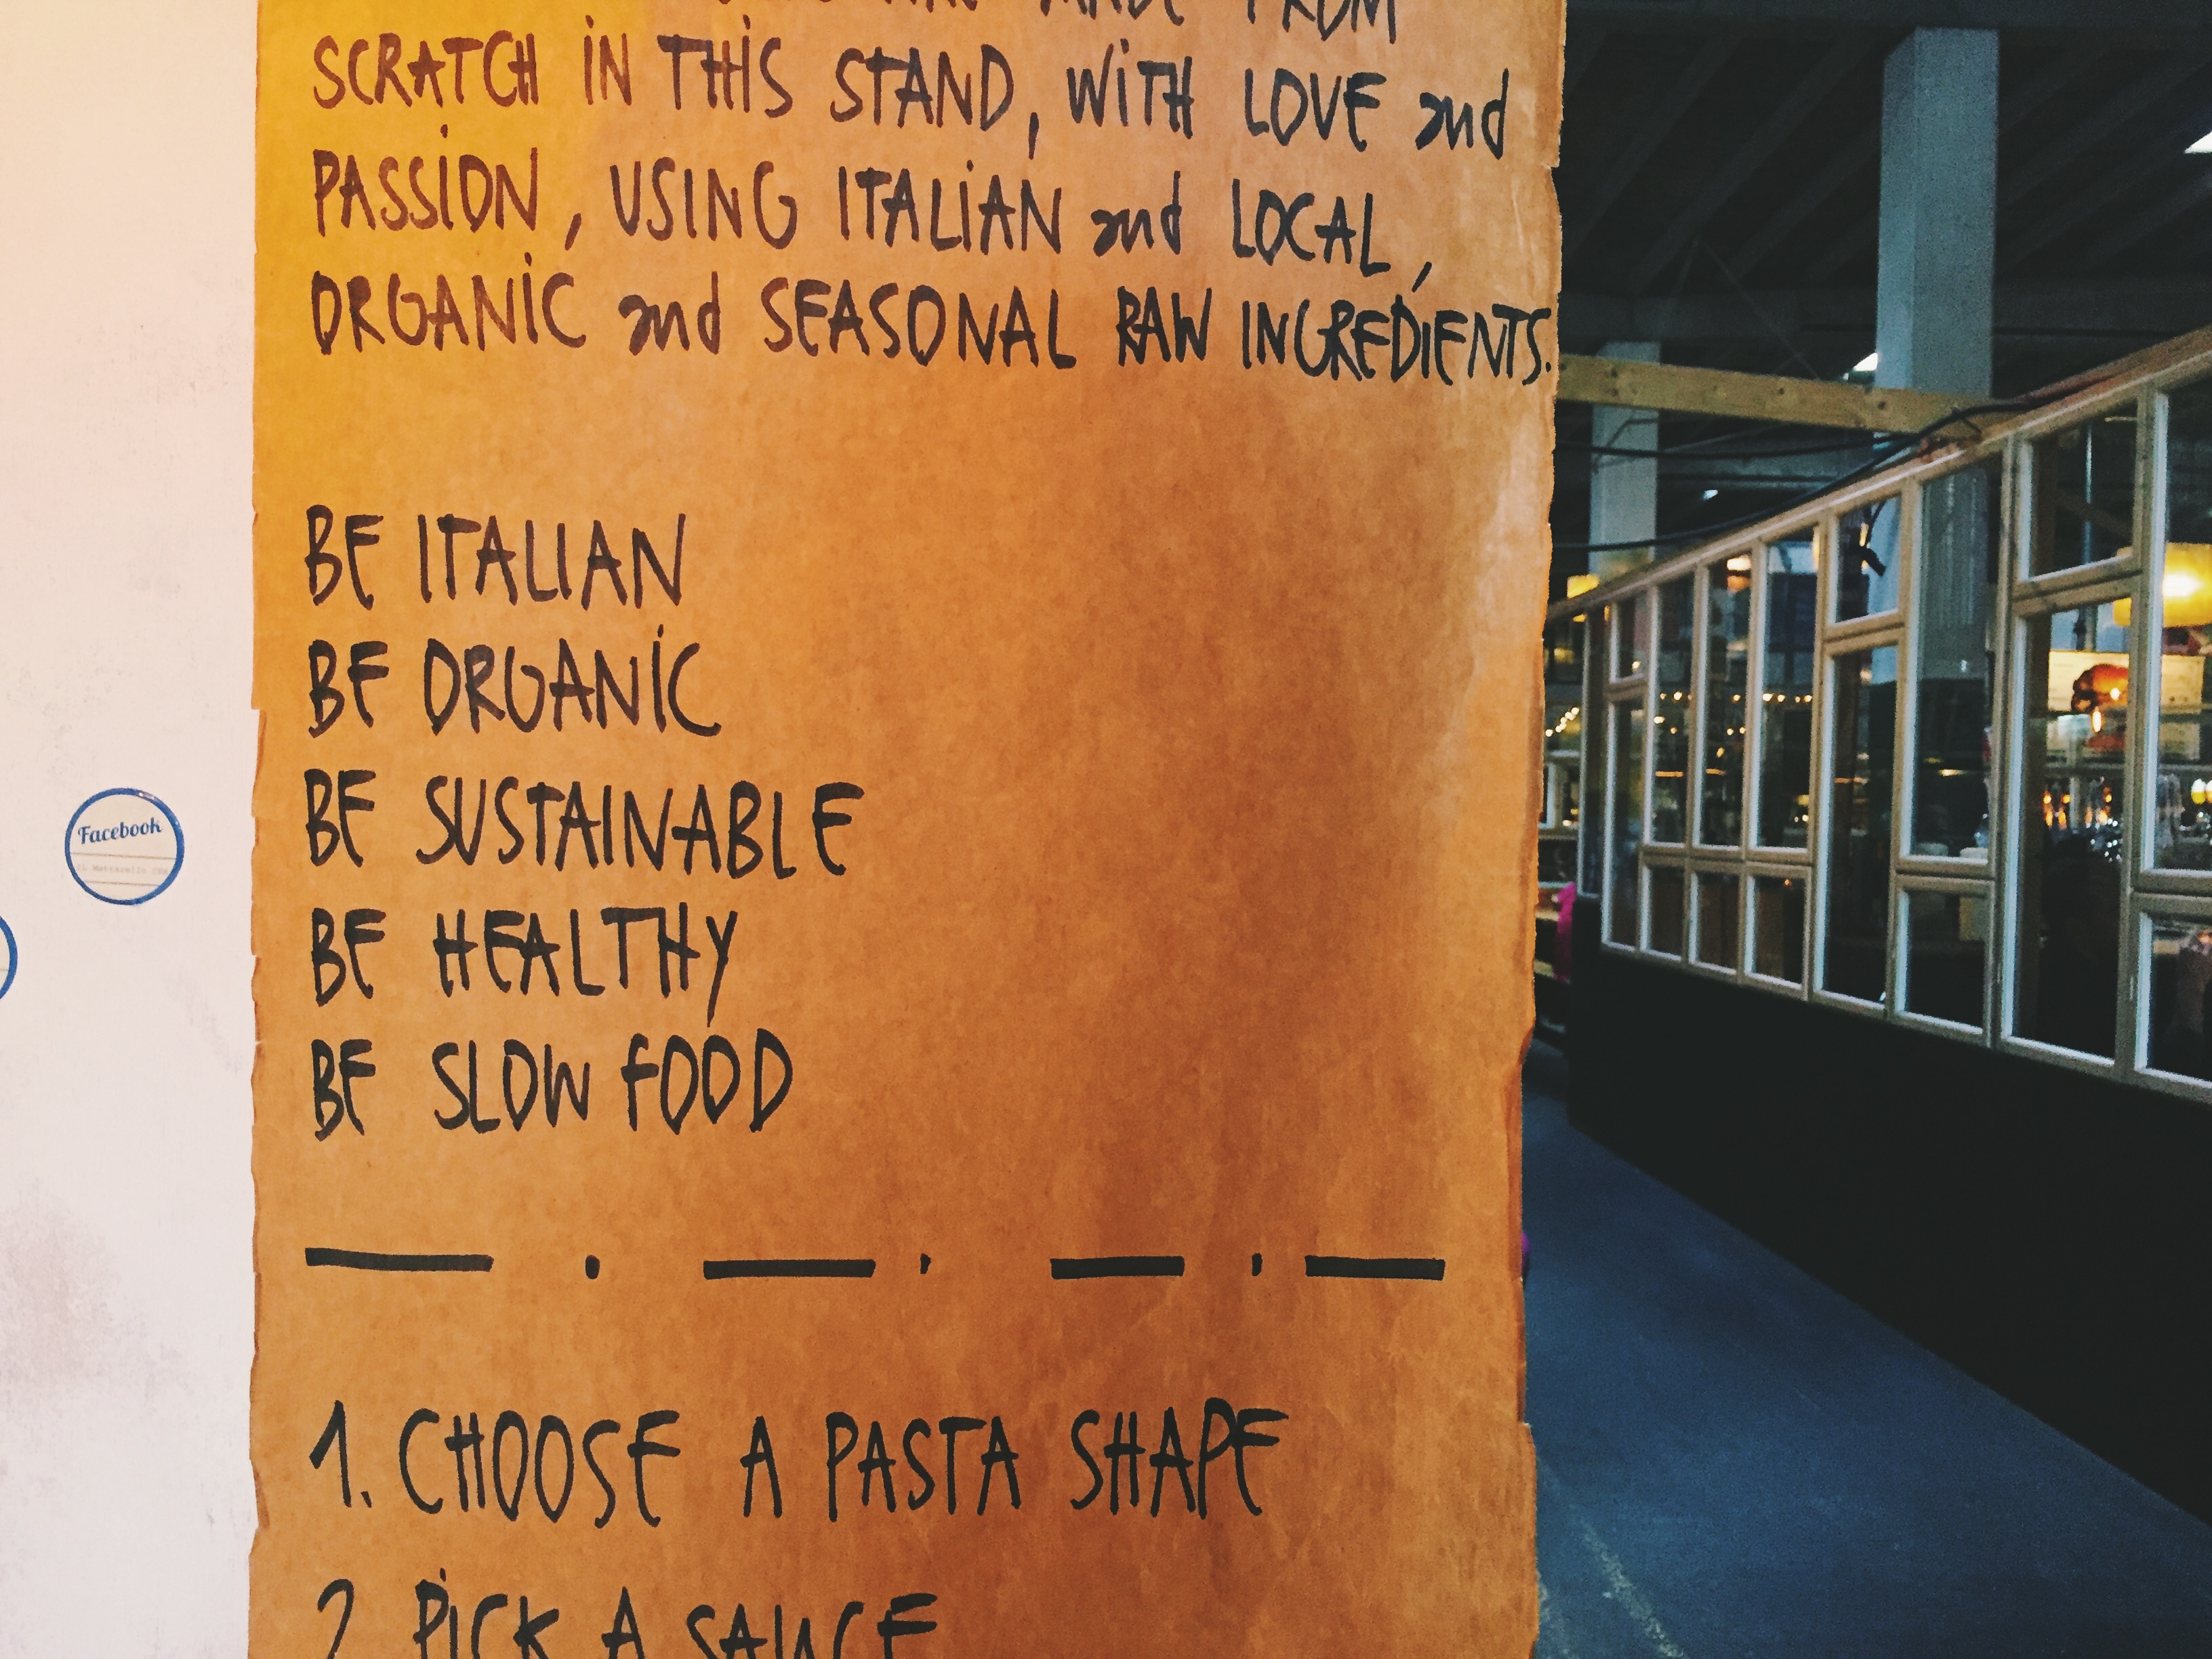 MADE FROM
SCRATCH IN THIS STAND, WITH LOVE and
PASSION, USING ITALIAN and LOCAL,
ORGANIC and SEASONAL RAW INGREDIENTS.
BE ITALIAN
BE ORGANIC
BE SUSTAINABLE
BE HEALTHY
BE SLOW FOOD
1. CHOOSE A PASTA SHAPE
2. PICK A SAUCE
Facebook